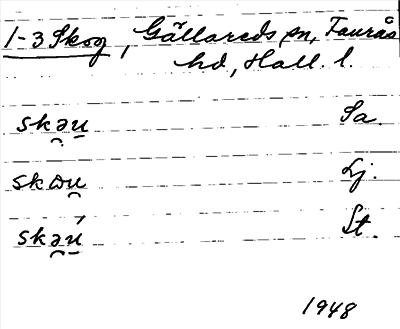 1-3 Skog, Gällareds sn, Faurås
hd, Hall. l.
skə̯u̲ Sa.
skωu̯ Lj.
skə̯ú̲ St.
1948